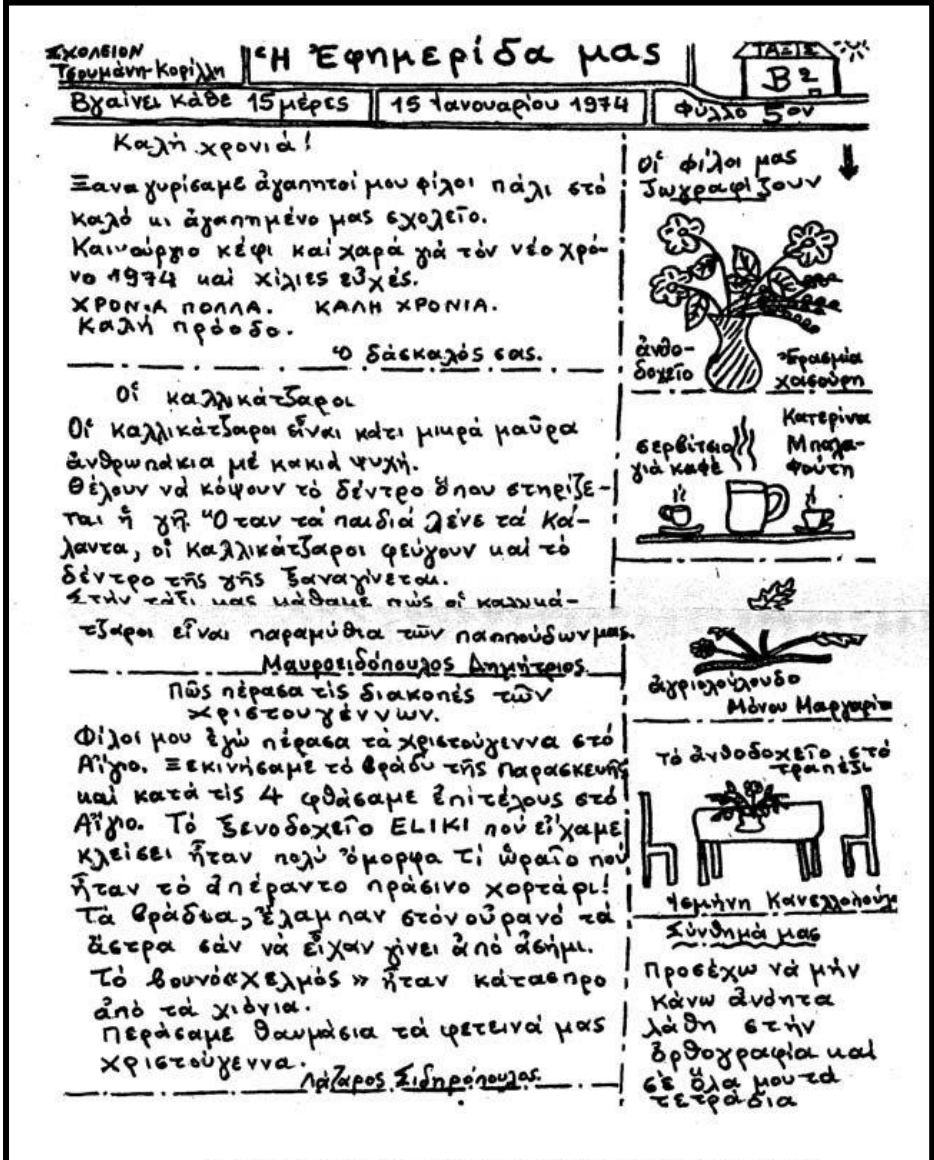 ΣΧΟΛΕΙΟΝ
Τσουμάνη-Κορίλλη
Ἡ Ἐφημερίδα μας
ΤΑΞΙΣ
Β2
Βγαίνει κάθε 15 μέρες
15 Ἰανουαρίου 1974
Φύλλο 5ον
Καλή χρονιά!
Ξαναγυρίσαμε ἀγαπητοί μου φίλοι πάλι στό
καλό κι ἀγαπημένο μας σχολεῖο.
Καινούργιο κέφι καί χαρά γιά τόν νέο χρό-
νο 1974 καί χίλιες εὐχές.
ΧΡΟΝΙΑ ΠΟΛΛΑ. ΚΑΛΗ ΧΡΟΝΙΑ.
Καλή πρόοδο.
Ὁ δάσκαλός σας.
Οἱ καλλικάτζαροι
Οἱ καλλικάτζαροι εἶναι κάτι μικρά μαῦρα
ἀνθρωπάκια μέ κακιά ψυχή.
Θέλουν νά κόψουν τό δέντρο ὅπου στηρίζε-
ται ἡ γῆ. Ὅταν τά παιδιά λένε τά κά-
λαντα, οἱ καλλικάτζαροι φεύγουν καί τό
δέντρο τῆς γῆς ξαναγίνεται.
Στήν τάξι μας μάθαμε πώς οἱ καλικά-
τζαροι εἶναι παραμύθια τῶν παππούδων μας.
Μαυροειδόπουλος Δημήτριος.
Πῶς πέρασα τίς διακοπές τῶν
χριστουγέννων.
Φίλοι μου ἐγώ πέρασα τά χριστούγεννα στό
Αἴγιο. Ξεκινήσαμε τό βράδυ τῆς Παρασκευῆς
καί κατά τίς 4 φθάσαμε ἐπιτέλους στό
Αἴγιο. Τό ξενοδοχεῖο ELIKI πού εἴχαμε
κλείσει ἦταν πολύ ὄμορφα τί ὡραῖο πού
ἦταν τό ἀπέραντο πράσινο χορτάρι!
Τά βράδυα, ἔλαμπαν στόν οὐρανό τά
ἄστρα σάν νά εἶχαν γίνει ἀπό ἀσήμι.
Τό βουνό «Χελμός» ἦταν κάτασπρο
ἀπό τά χιόνια.
Περάσαμε θαυμάσια τά φετεινά μας
χριστούγεννα.
Λάζαρος Σιδηρόπουλος.
Οἱ φίλοι μας
ζωγραφίζουν
ἀνθο-
δοχεῖο
Ἐρασμία
Χαισούρη
Κατερίνα
Μπαλα-
φούτη
σερβίτσιο
γιά καφέ
ἀγριολούλουδο
Μάνου Μαργαρίτα
τό ἀνθοδοχεῖο στό
τραπέζι
Ἰσμήνη Κανελλοπούλου
Σύνθημά μας
Προσέχω νά μήν
κάνω ἀνόητα
λάθη στήν
ὀρθογραφία καί
σέ ὅλα μου τά
τετράδια